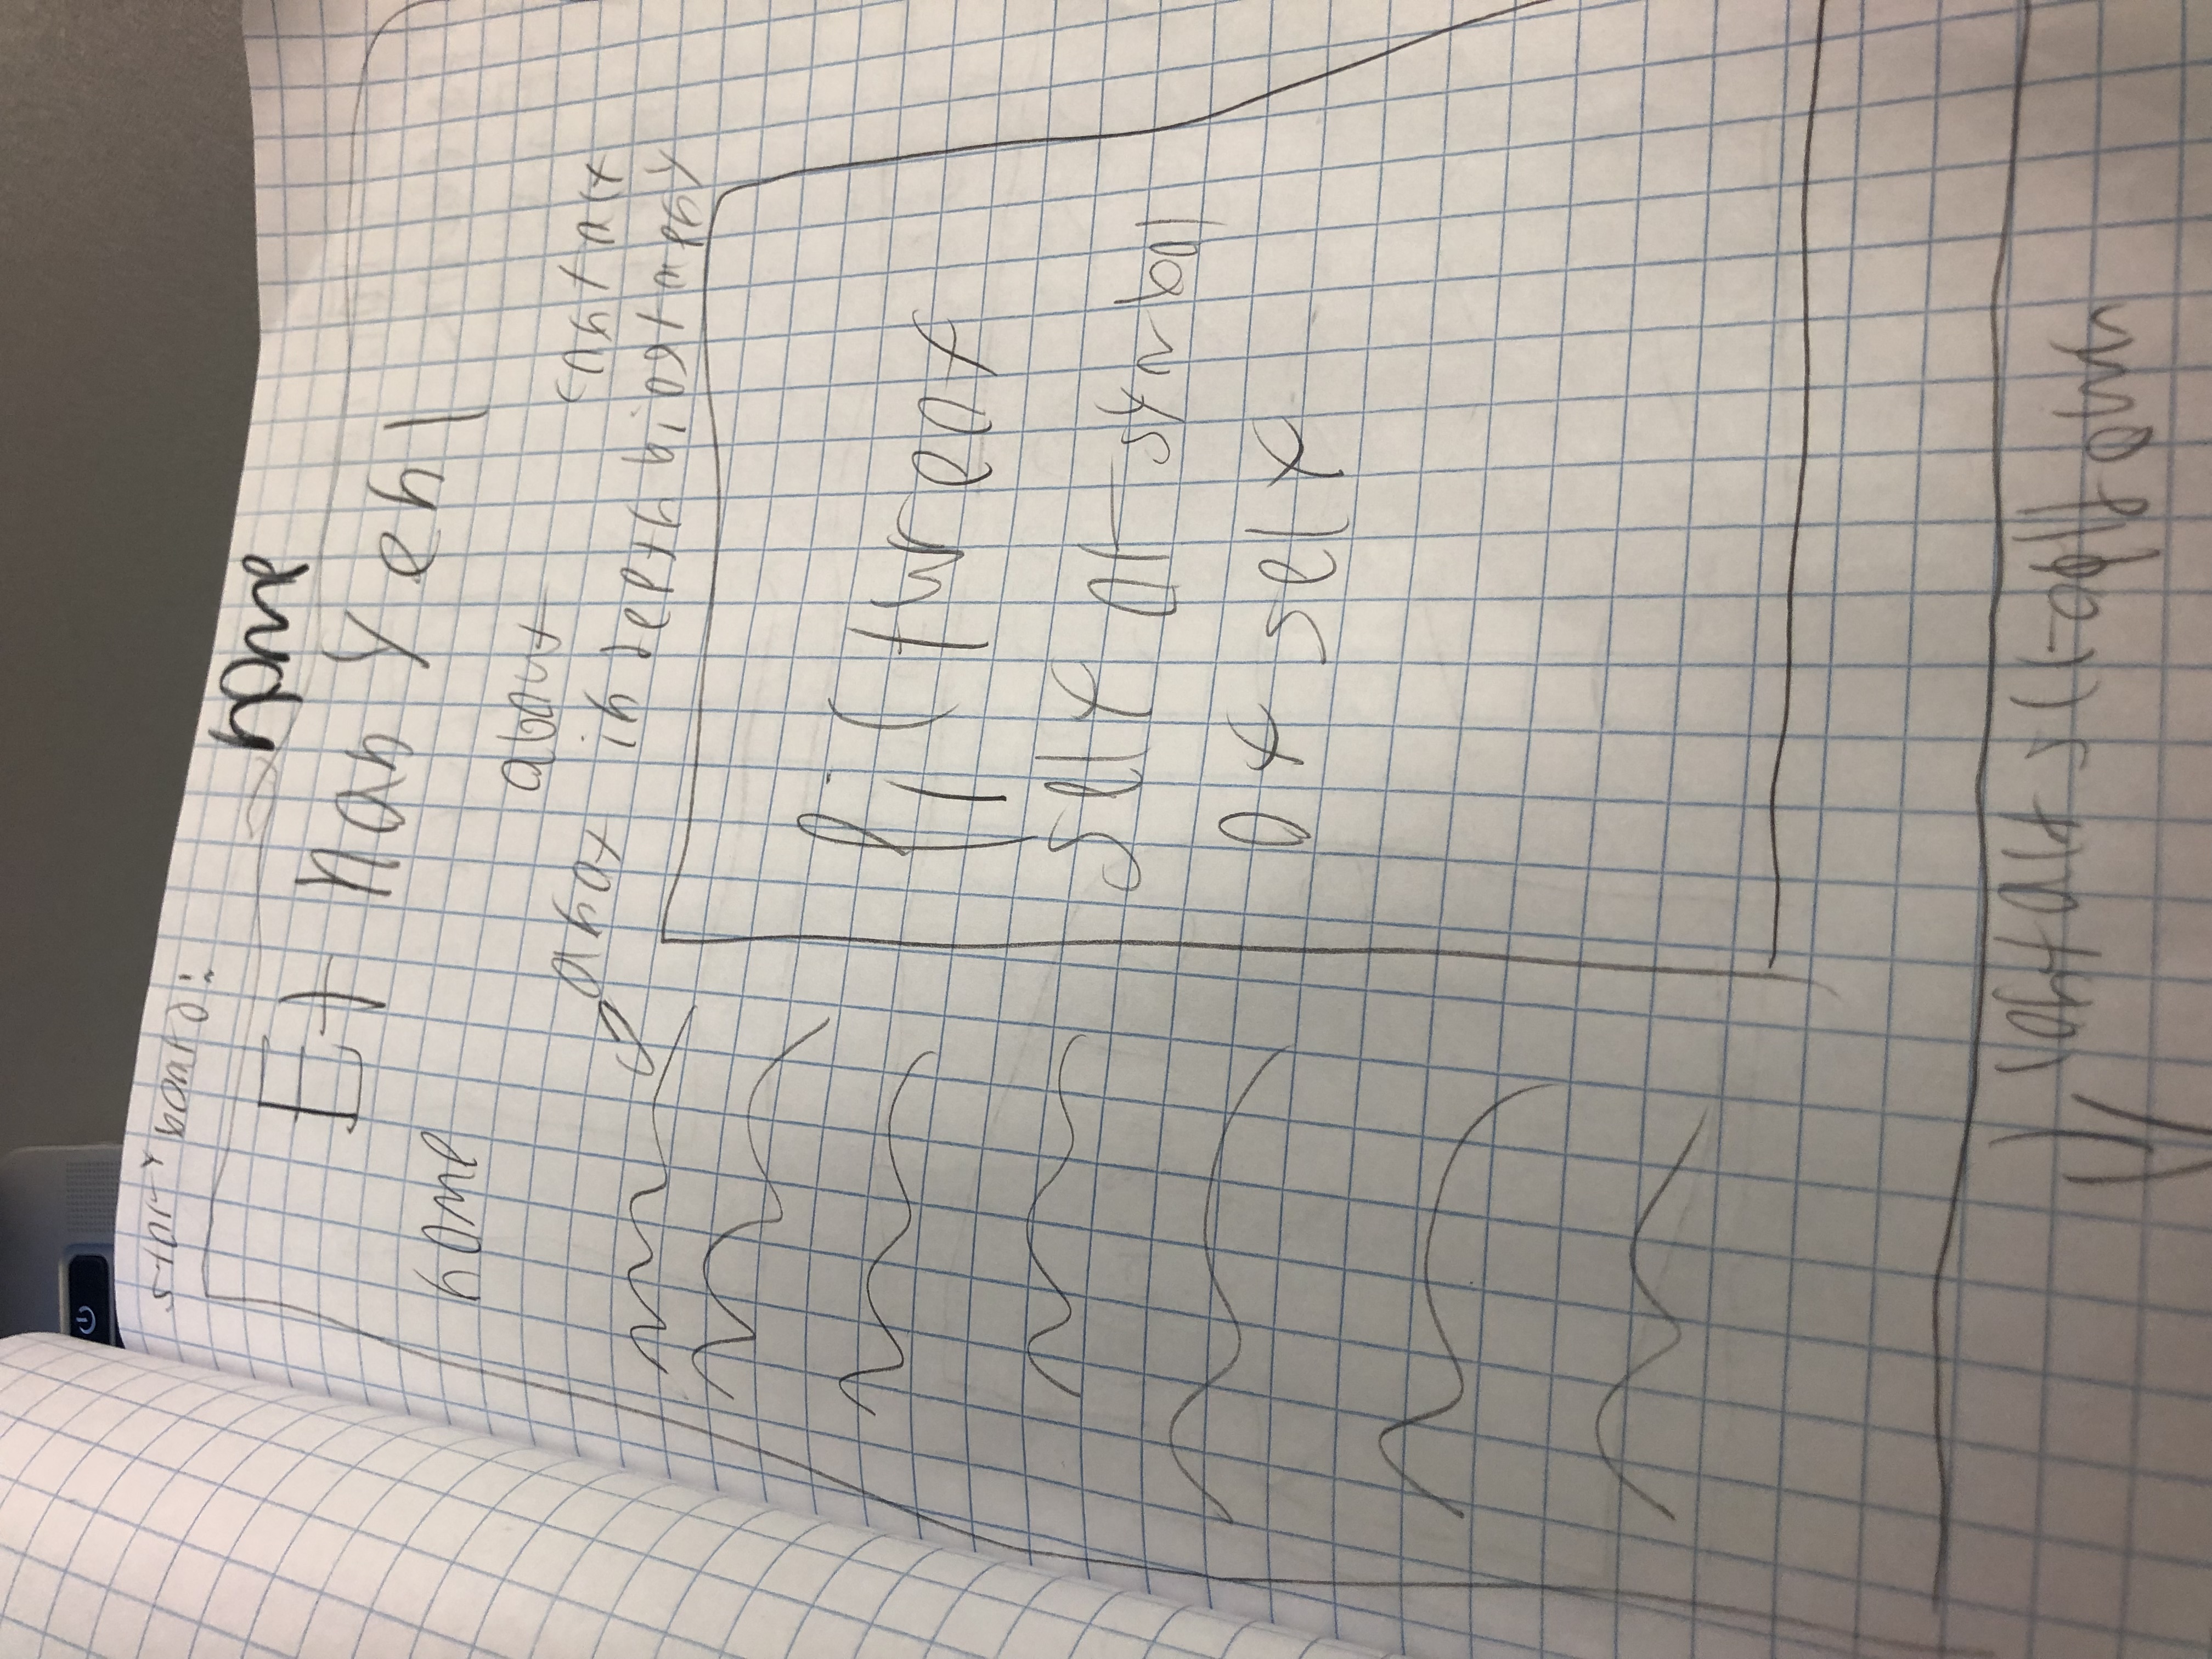 story board:
home
Ethan Yehl
home
about
contact
a not in depth biography
picture of
self or symbol
of self
contact scroll down